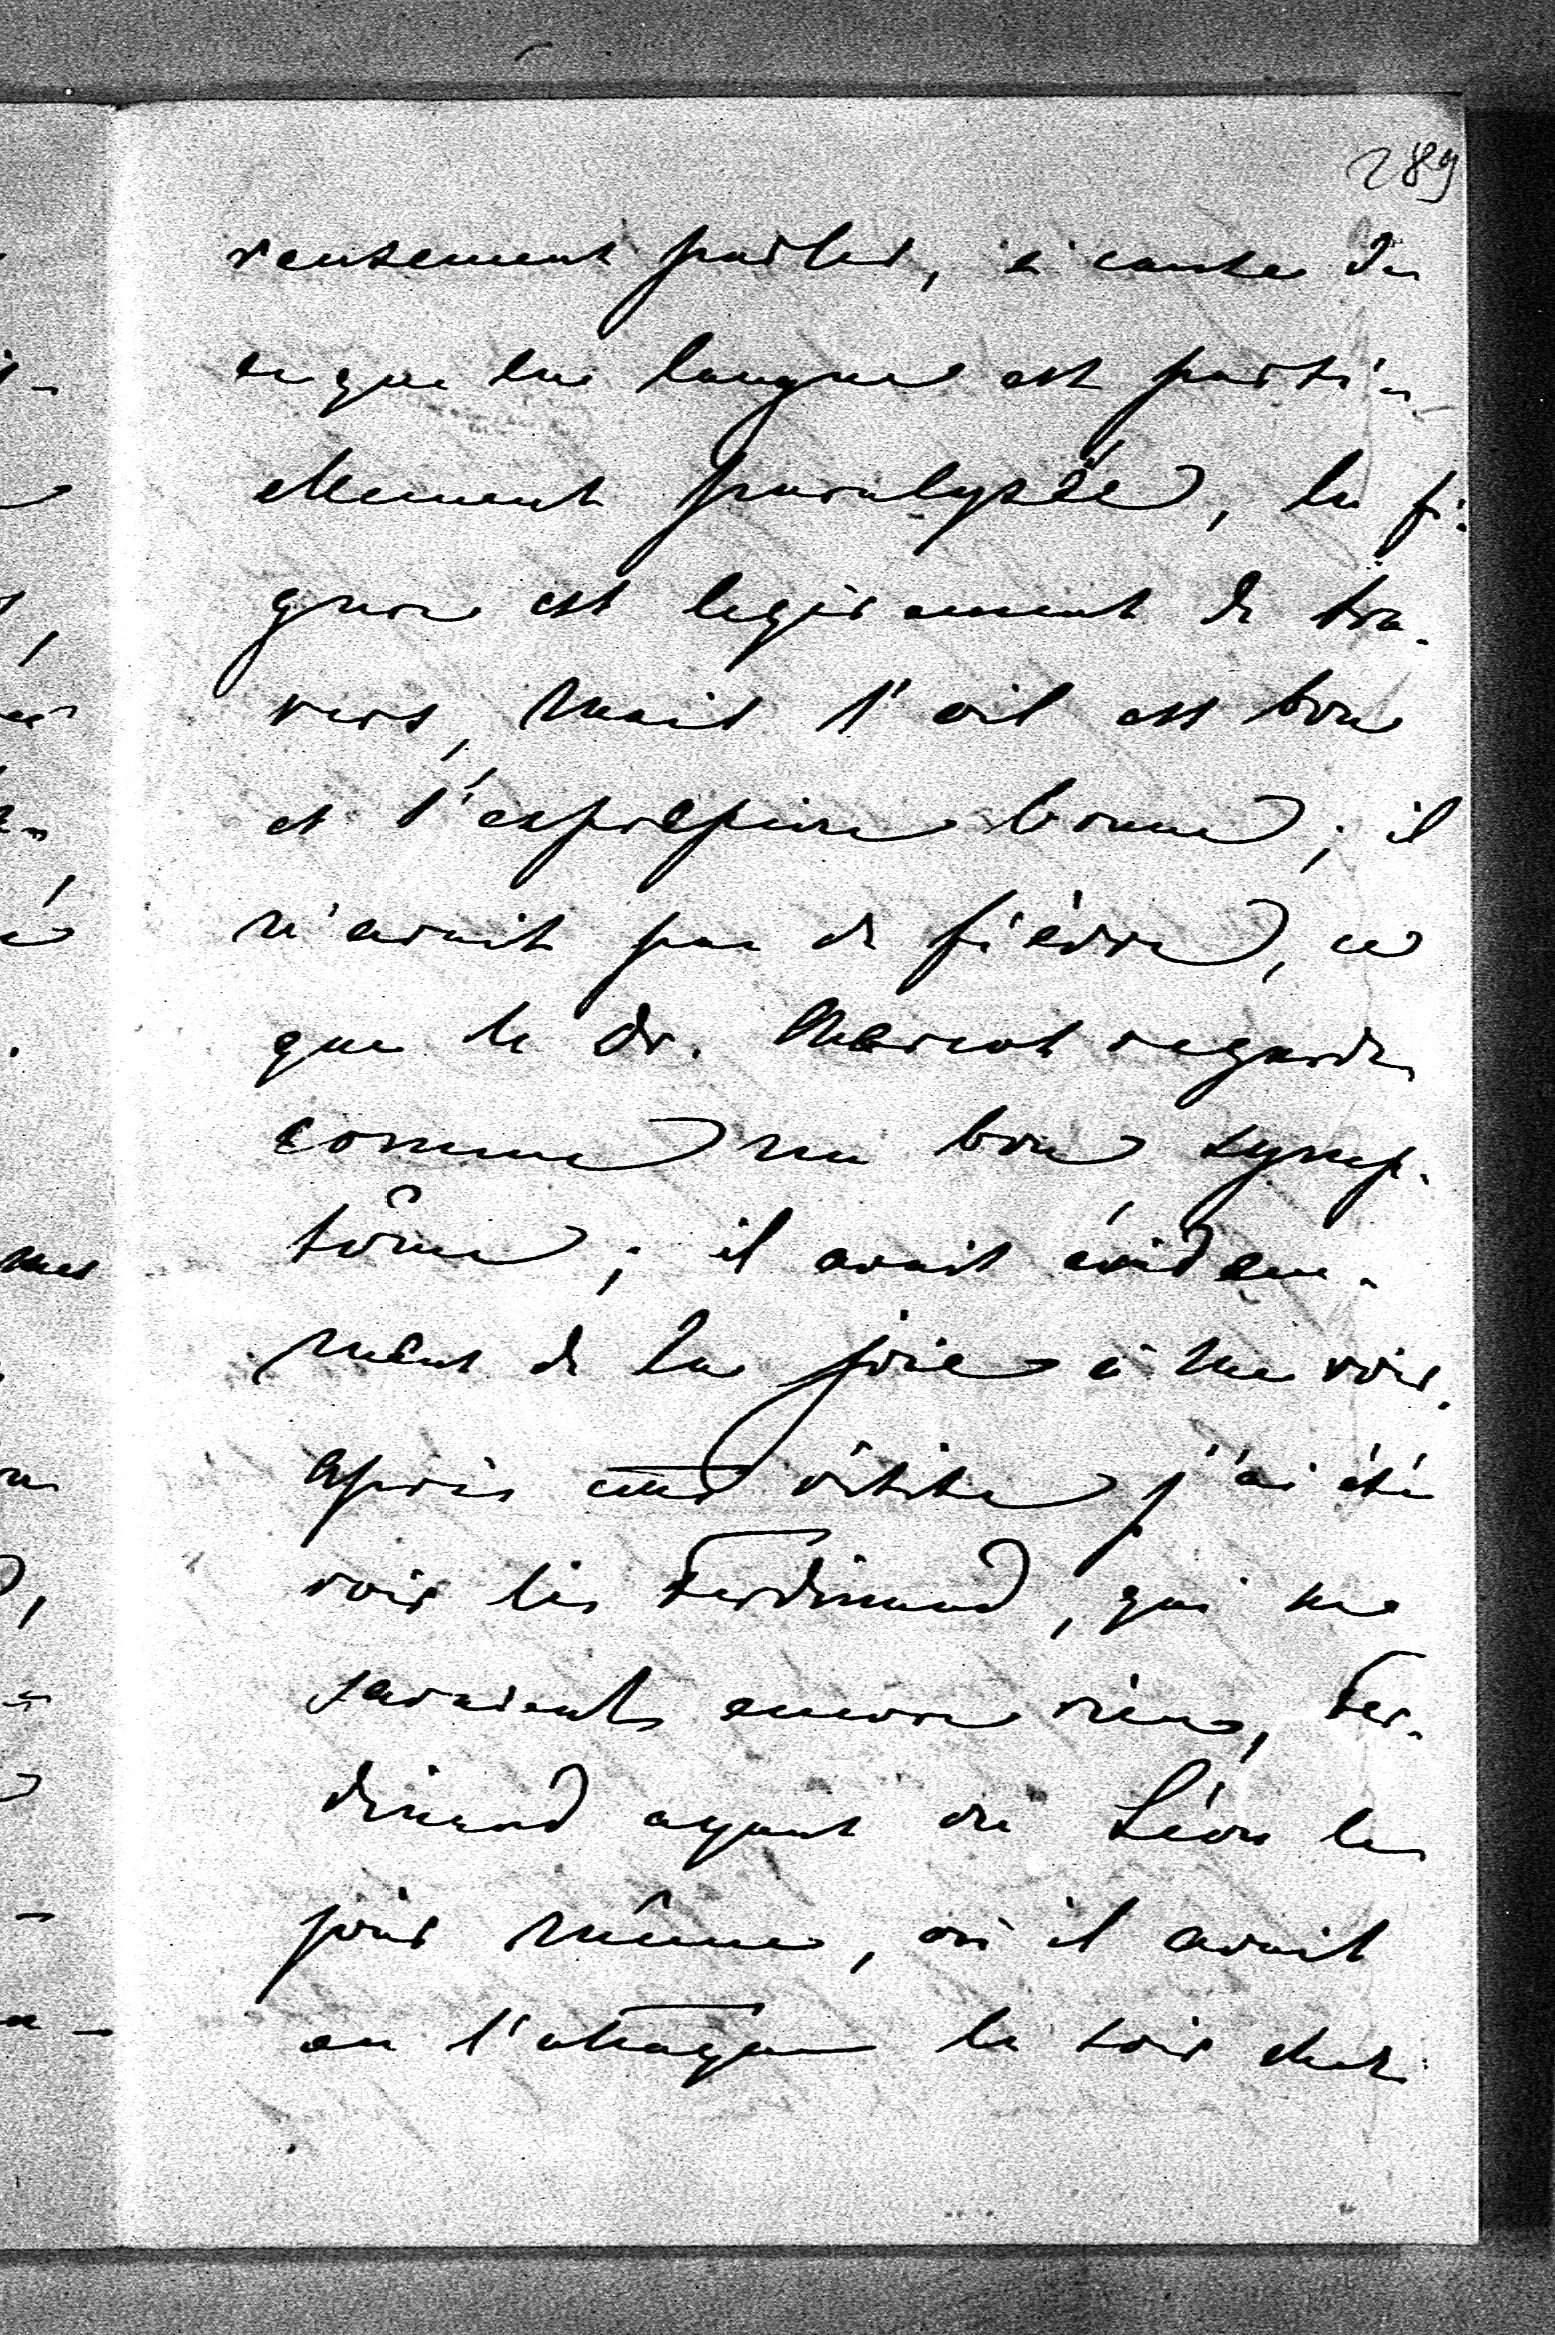 289
reusement parler, à cause de
ce que la langue est parti-
ellement paralysée, la fi-
gure est legèrement de tra-
vers, mais l'œil est bon
et l'expression bonne ; il
n'avait pas de fièvre, ce
que le Dr. regarde
comme un bon symp-
tôme ; il avait évidem-
ment de la joie à me voir.
Après cette visite j'ai été
voir les Ferdinand, qui ne
savaient encore rien, Fer-
dinand ayant vu Léon le
jour même, où il avait
eu l'attaque le soir chez